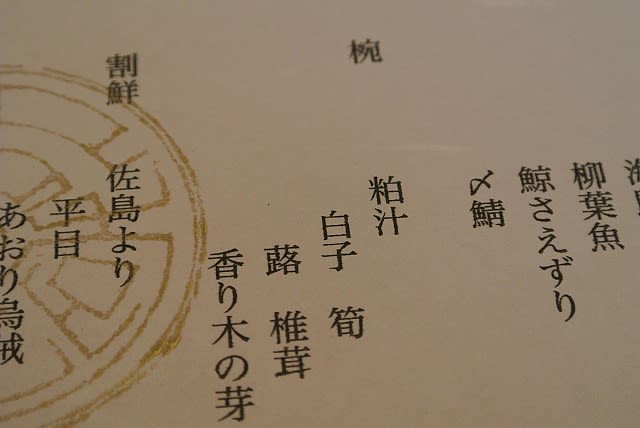 海
柳葉魚
鯨さえずり
〆鯖
椀
粕汁
白子 筍
蕗 椎茸
香り木の芽
割鮮 佐島より
平目
あおり烏賊